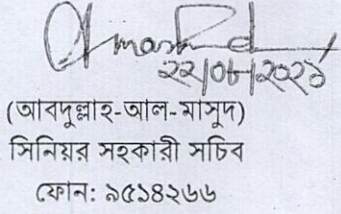 ২২/০৮/২০২১
(আবদুল্লাহ-আল-মাসুদ)
সিনিয়র সহকারী সচিব
ফোন: ৯৫১৪২৬৬